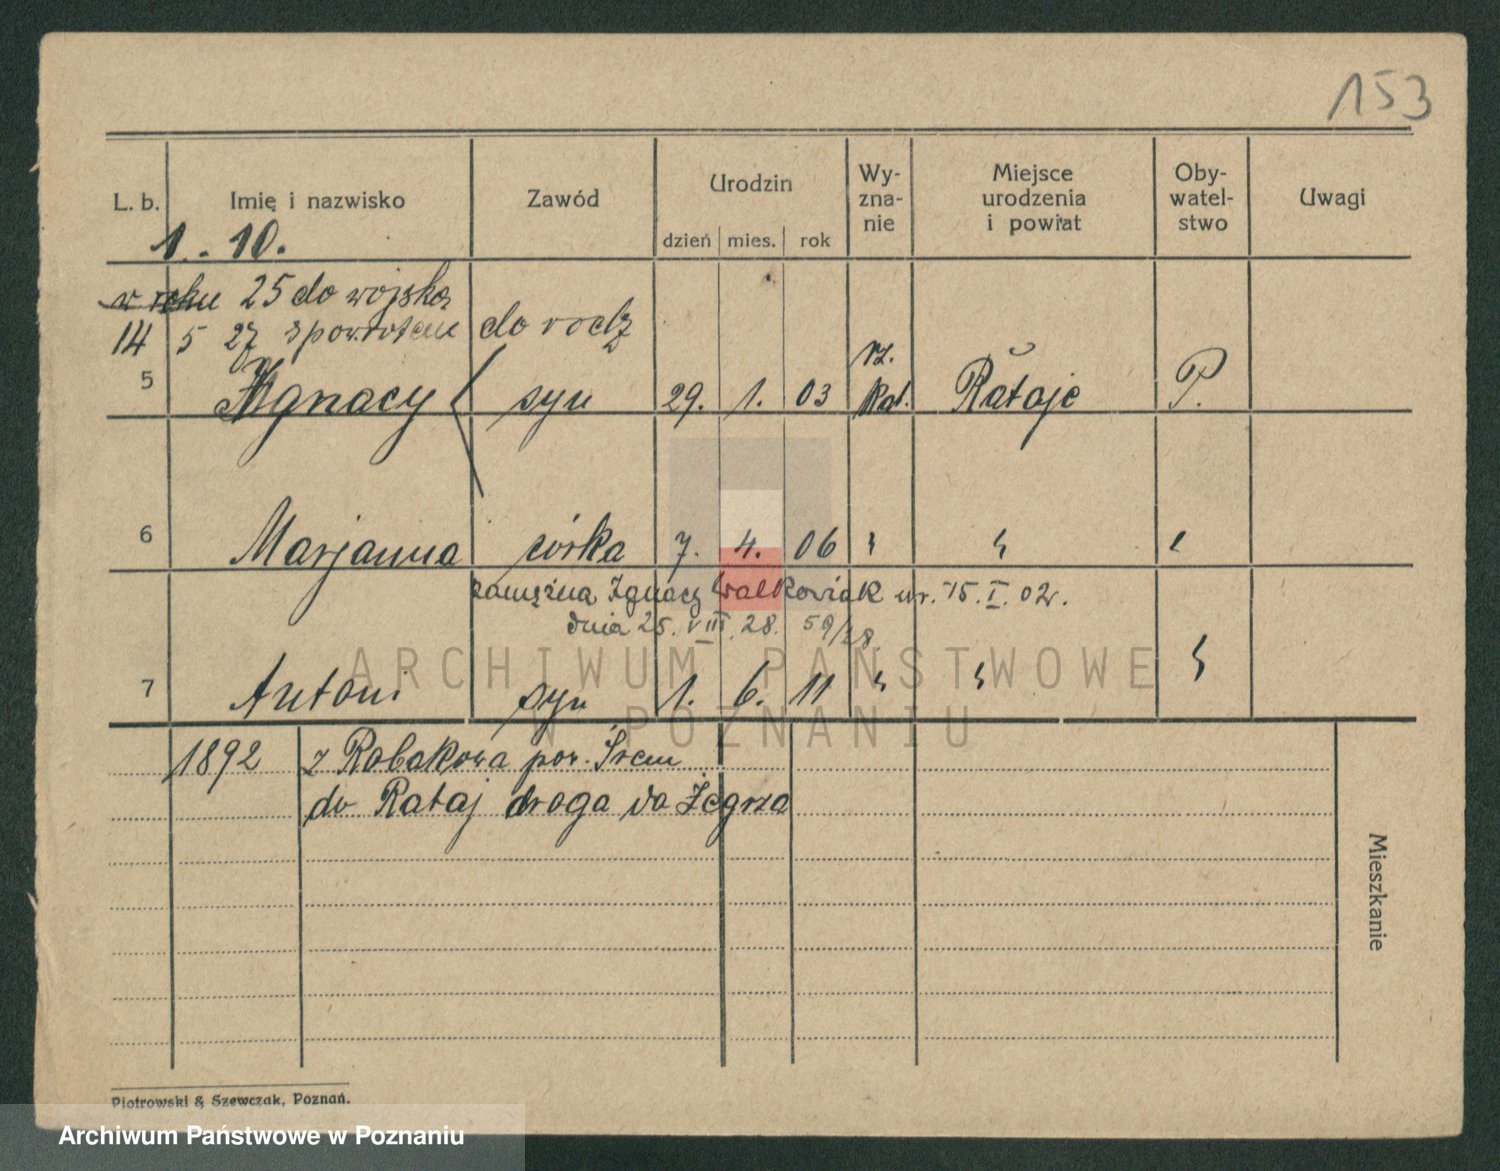 153
L. b. Imię i nazwisko Zawód Urodzin dzień mies. rok Wy-zna-nie Miejsce urodzenia i powiat Oby-watel-stwo Uwagi
1. 10.
w roku 25 do wojska
14 5 27 spowrotem do rodz
5 Ignacy syn 29. 1. 03 rz. kat. Rataje P.
6 Marjanna córka 7. 4. 06 " " "
zamężna Ignacy Walkowiak ur. 15. I. 02r.
dnia 25. VIII. 28. 59/28
7 Antoni syn 1. 6. 11 " " "
ARCHIWUM PAŃSTWOWE
W POZNANIU
1892 z Robakowa pow. Śrem
do Rataj droga do Żegrza
Mieszkanie
Piotrowski & Szewczak, Poznań.
Archiwum Państwowe w Poznaniu